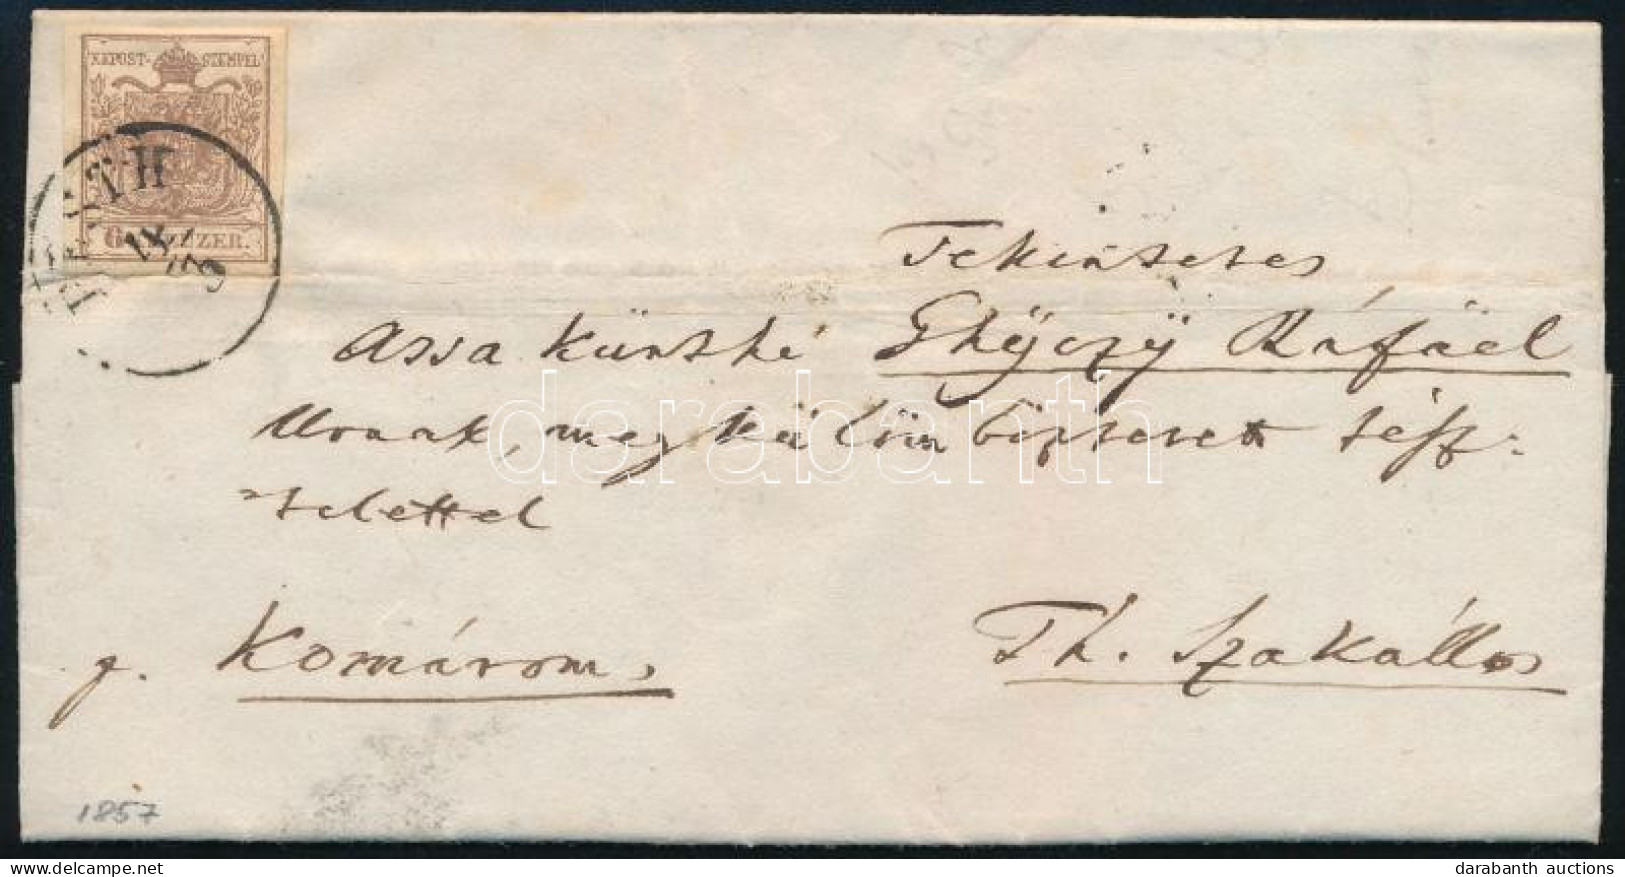 KKPOST-STEMPEL
6 KREUZER.
PESTH
Tekintetes
Assa Kürthi Ghÿczÿ Ráfáel
Urnak, megkülömböztetett tisz-
telettel
p. Komárom,
Th. Szakállos
1857
darabanth
darabanth auctions